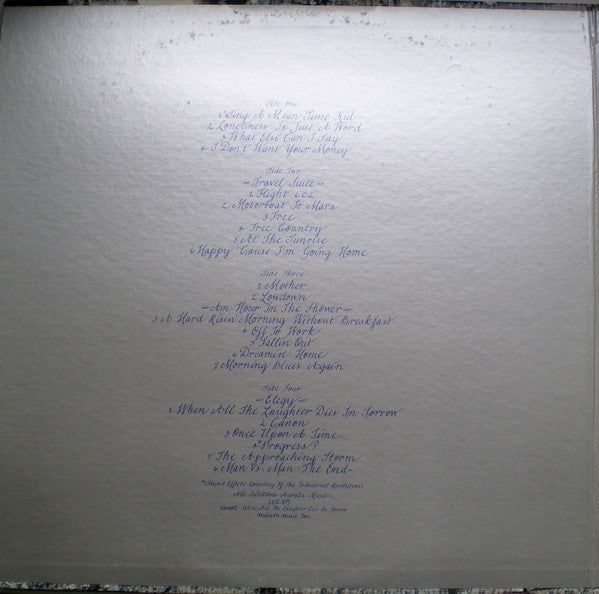 Side One
1 Sing A Mean Tune Kid
2 Loneliness Is Just A Word
3 What Else Can I Say
4 I Don't Want Your Money
Side Two
~Travel Suite~
1 Flight 602
2 Motorboat To Mars
3 Free
4 Free Country
5 At The Sunrise
6 Happy 'Cause I'm Going Home
Side Three
1 Mother
2 Lowdown
~An Hour In The Shower~
3 A Hard Risin' Morning Without Breakfast
4 Off To Work
5 Fallin' Out
6 Dreamin' Home
7 Morning Blues Again
Side Four
~Elegy~
1 When All The Laughter Dies In Sorrow
2 Canon
3 Once Upon A Time...
4 *Progress?
5 The Approaching Storm
6 Man Vs. Man: The End
*(Sound Effects Courtesy Of The Industrial Revolution)
All Selections Aurelius Music
(ASCAP)
except: When All The Laughter Dies In Sorrow
Music, Inc.